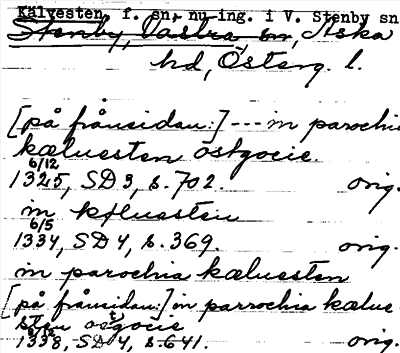 Kälvesten, f. sn, nu ing. i V. Stenby sn
Stenby, Västra sn, Aska
hd, Österg. l.
[på frånsidan:] --- in parochia
kæluesten östgocie.
6/12
1325, SD 3, s. 702. orig.
in kæluesten
6/5
1334, SD 4, s. 369. orig.
in parochia kæluesten
[på frånsidan:] in parrochia kælue
sten ostgocie
1338, SD 4, s. 641. orig.